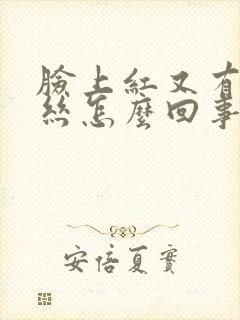 臉上紅又有
絲怎麼回事
安倍夏實